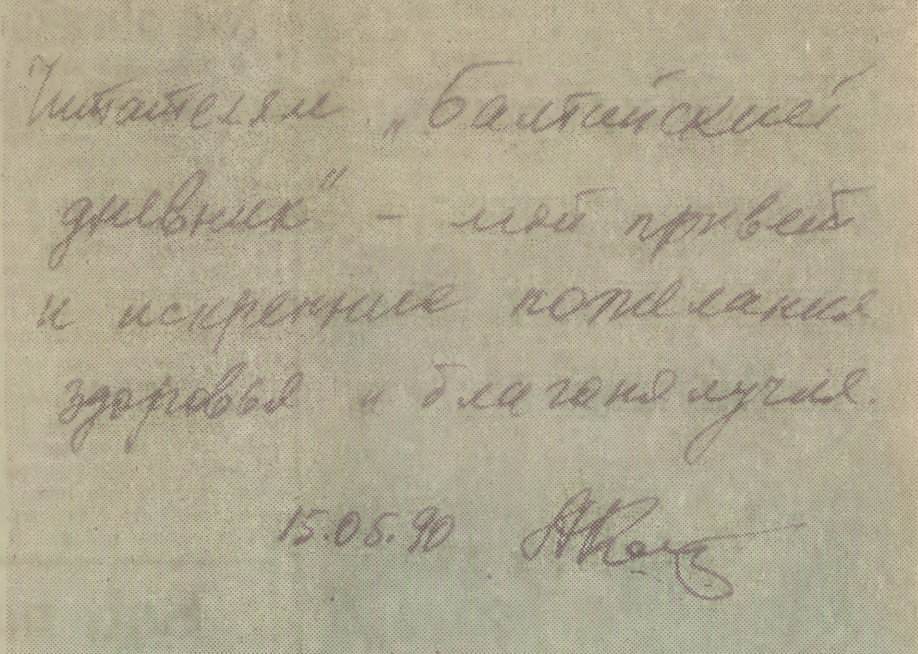 Читателям „Балтийский
дневник" - мой привет
и искренние пожелания
здоровья и благополучия.
15.05.90